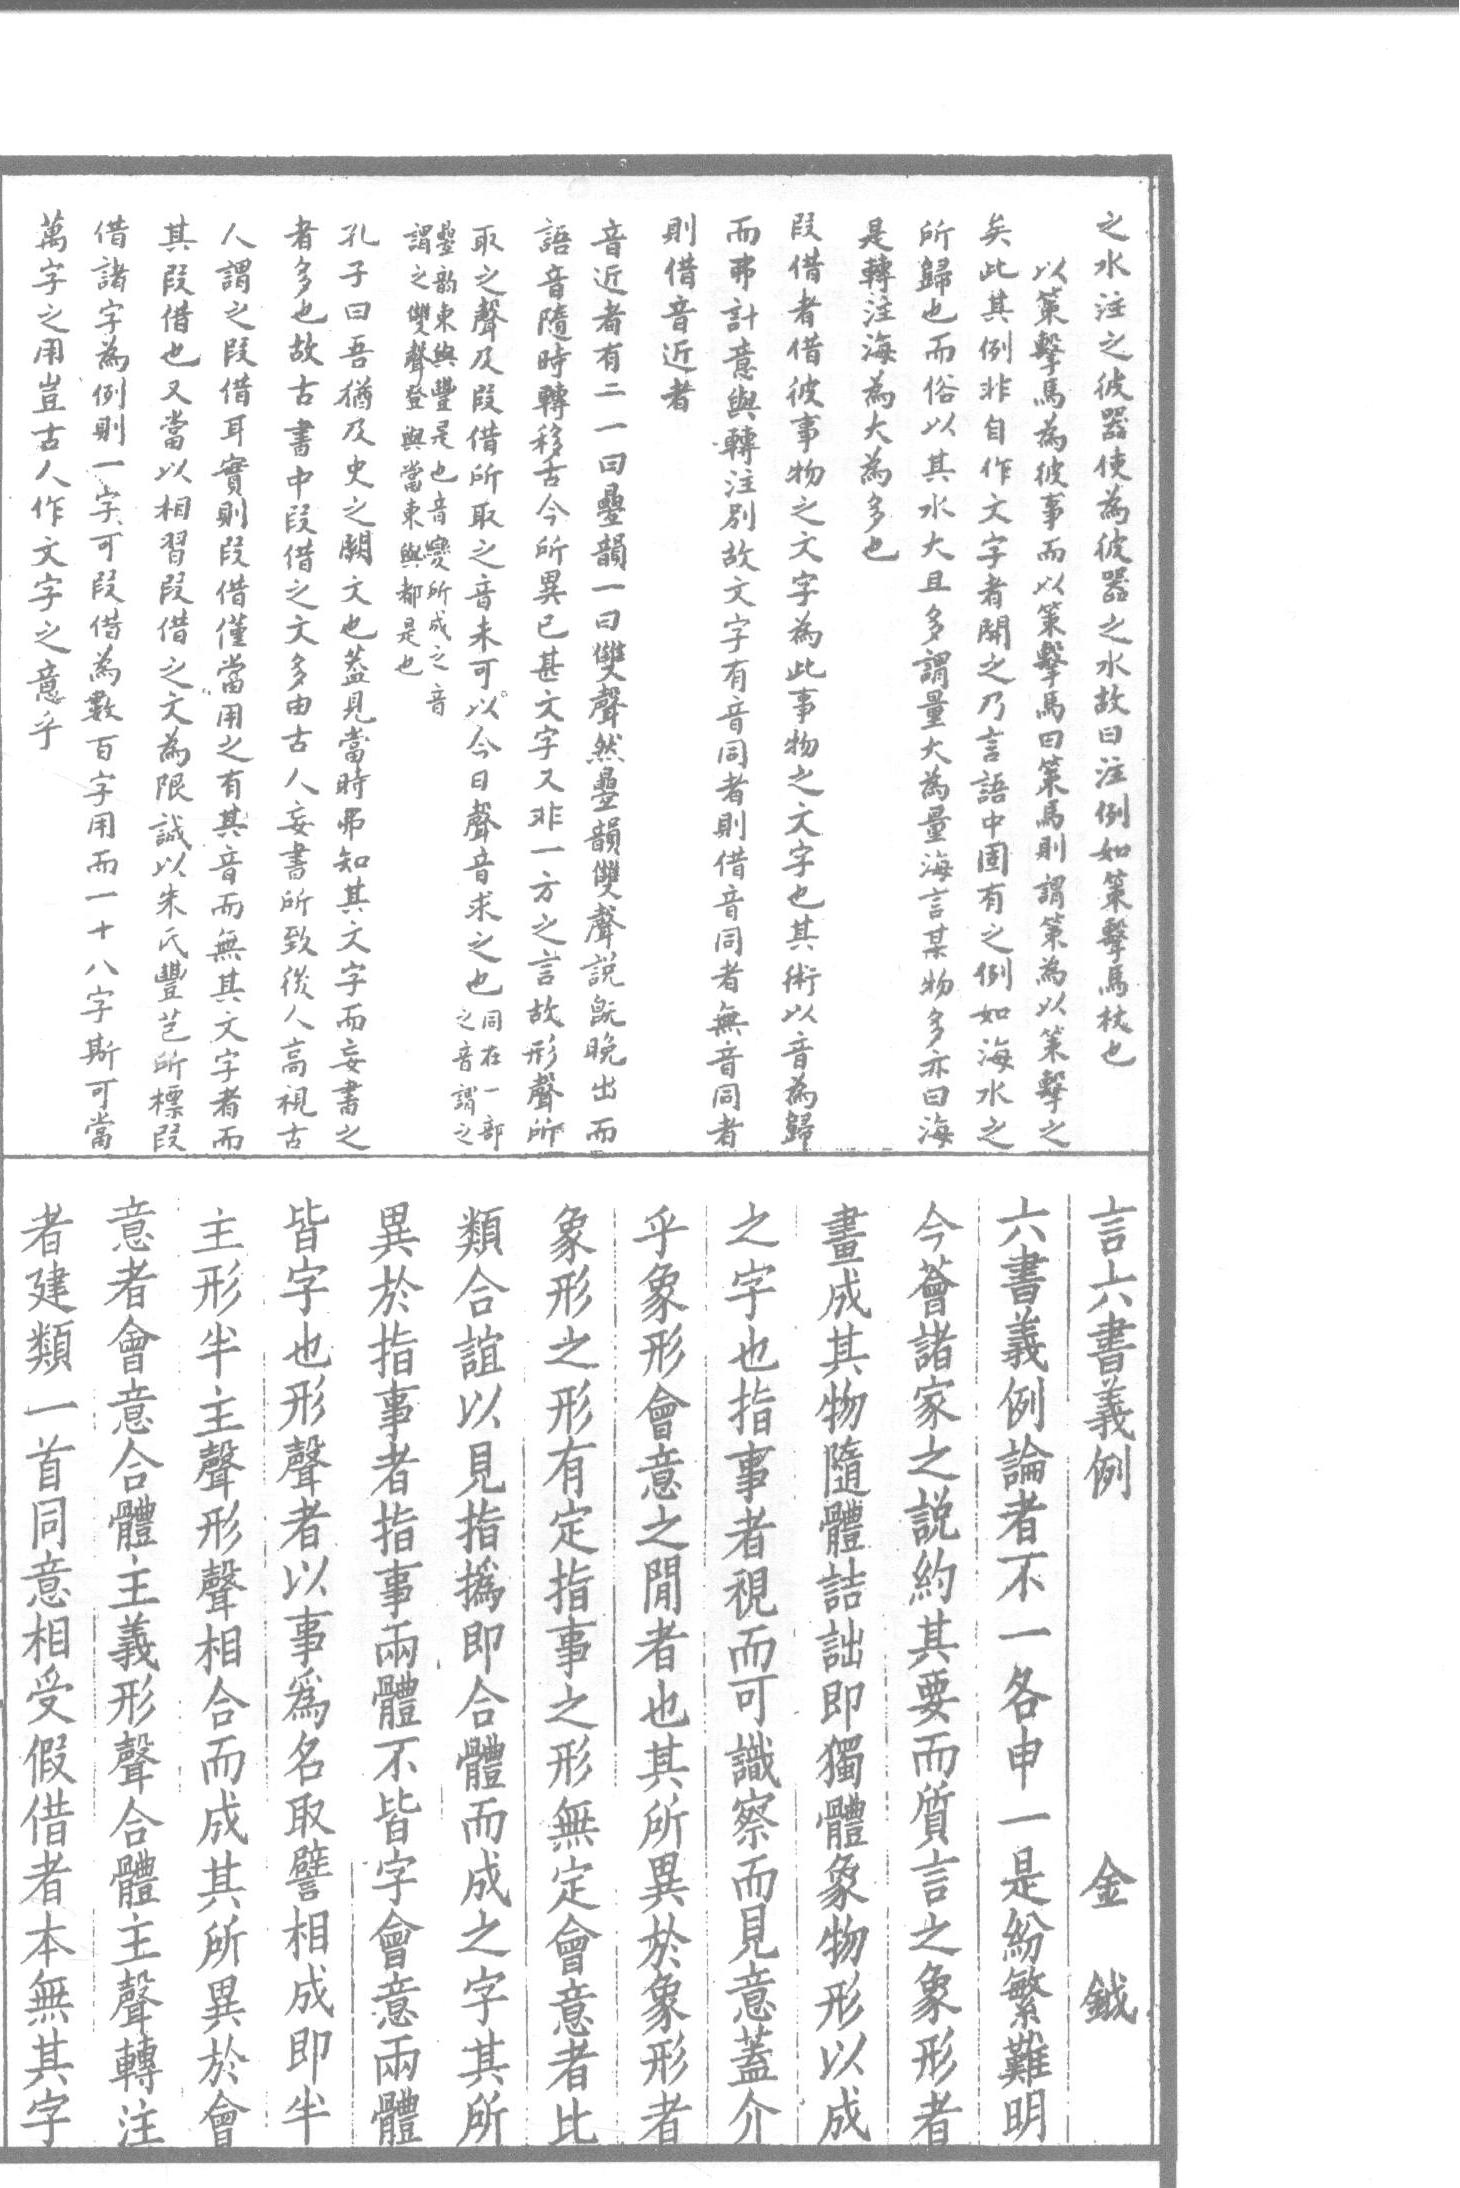 之水注之彼器使為彼器之水故曰注例如策擊馬杖也
以策擊馬為彼事而以策擊馬曰策馬則謂策為以策擊之
矣此其例非自作文字者開之乃言語中固有之例如海水之
所歸也而俗以其水大且多謂量大為量海言某物多亦曰海
是轉注海為大為多也
叚借者借彼事物之文字為此事物之文字也其術以音為歸
而弗計意與轉注別故文字有音同者則借音同者無音同者
則借音近者
音近者有二一曰疊韻一曰雙聲然疊韻雙聲説旣晚出而
語音隨時轉移古今所異已甚文字又非一方之言故形聲所
取之聲及叚借所取之音未可以今日聲音求之也同在一部
之音謂之
疊韵東與豐是也音變所成之音
謂之雙聲登與當東與都是也
孔子曰吾猶及史之闕文也葢見當時弗知其文字而妄書之
者多也故古書中叚借之文多由古人妄書所致後人高視古
人謂之叚借耳實則叚借僅當用之有其音而無其文字者而
其叚借也又當以相習叚借之文為限誠以朱氏豐芑所標叚
借諸字為例則一字可叚借為數百字用而一十八字斯可當
萬字之用豈古人作文字之意乎
言六書義例
金鉞
六書義例論者不一各申一是紛繁難明
今薈諸家之説約其要而質言之象形者
畫成其物隨體詰詘即獨體象物形以成
之字也指事者視而可識察而見意蓋介
乎象形會意之閒者也其所異於象形者
象形之形有定指事之形無定會意者比
類合誼以見指撝即合體而成之字其所
異於指事者指事兩體不皆字會意兩體
皆字也形聲者以事爲名取譬相成即半
主形半主聲形聲相合而成其所異於會
意者會意合體主義形聲合體主聲轉注
者建類一首同意相受假借者本無其字